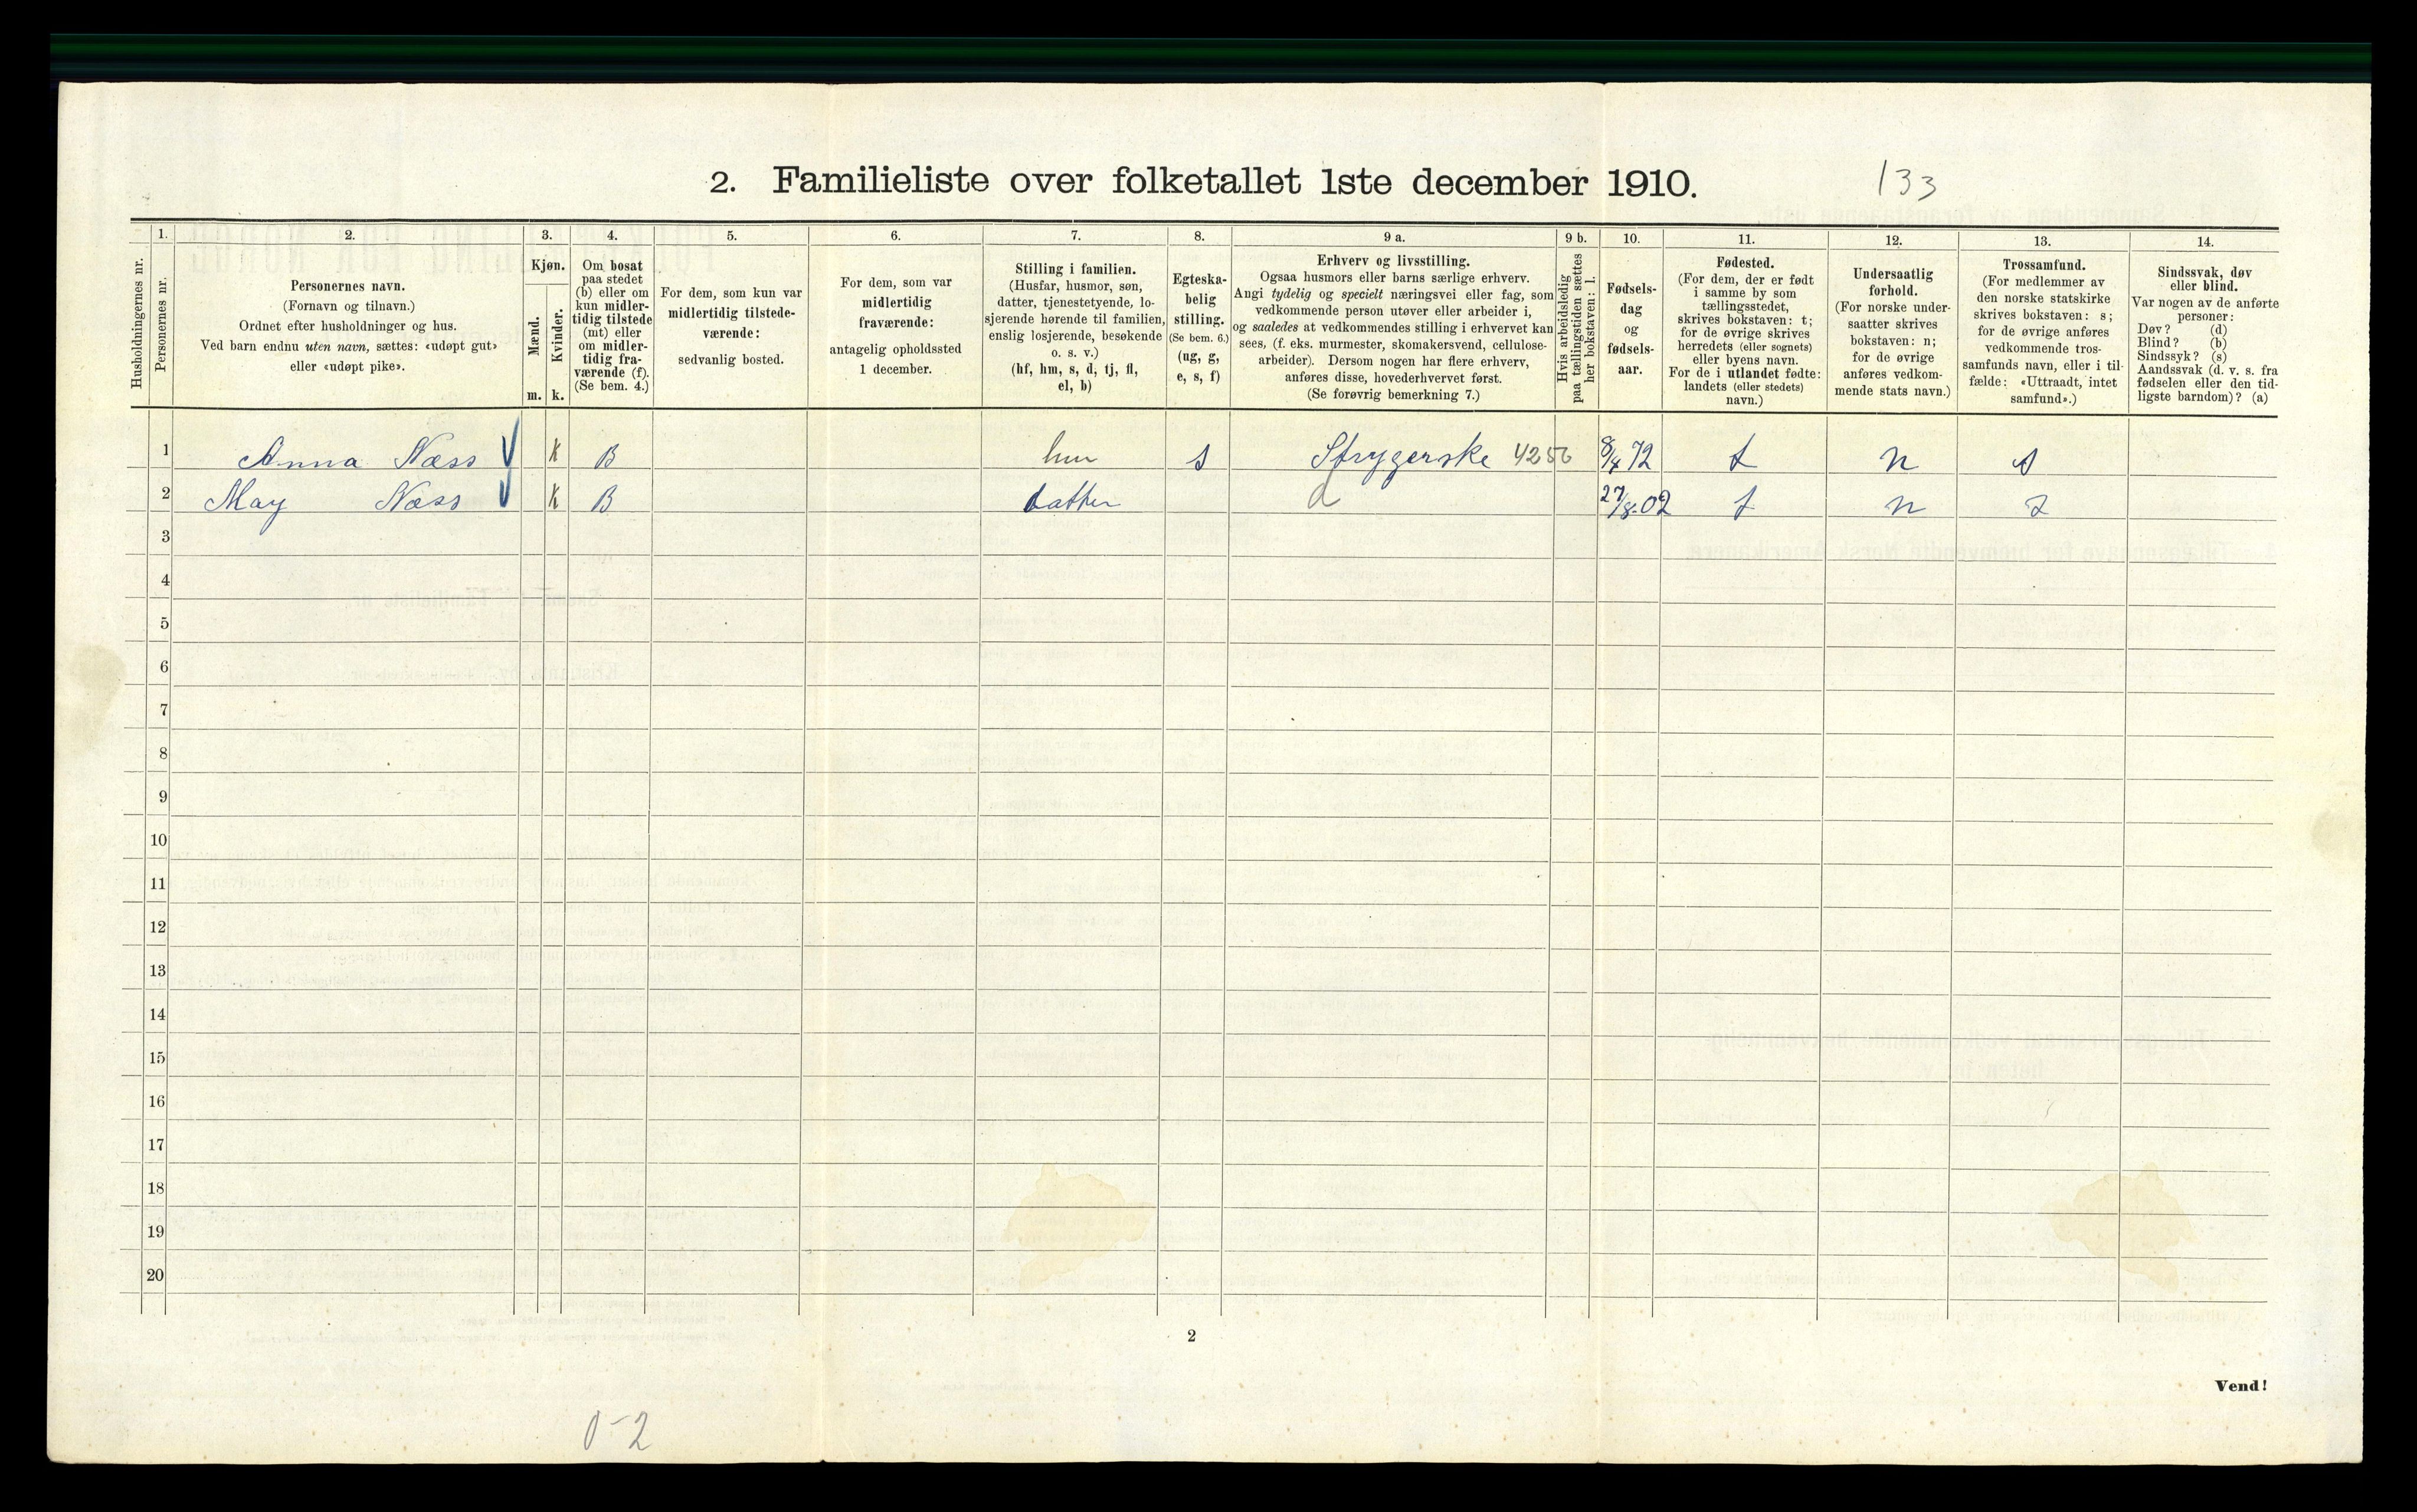 2. Familieliste over folketallet 1ste december 1910.
133
Husholdningernes nr.
1.
Personernes nr.
2.
Personernes navn.
(Fornavn og tilnavn.)
Ordnet efter husholdninger og hus.
Ved barn endnu uten navn, sættes: «udøpt gut»
eller «udøpt pike».
3.
Kjøn.
Mænd.
Kvinder.
m. k.
4.
Om bosat
paa stedet
(b) eller om
kun midler-
tidig tilstede
(mt) eller
om midler-
tidig fra-
værende (f).
(Se bem. 4.)
5.
For dem, som kun var
midlertidig tilstede-
værende:
sedvanlig bosted.
6.
For dem, som var
midlertidig
fraværende:
antagelig opholdssted
1 december.
7.
Stilling i familien.
(Husfar, husmor, søn,
datter, tjenestetyende, lo-
sjerende hørende til familien,
enslig losjerende, besøkende
o. s. v.)
(hf, hm, s, d, tj, fl,
el, b)
8.
Egteska-
belig
stilling.
(Se bem. 6.)
(ug, g,
e, s, f)
9 a.
Erhverv og livsstilling.
Ogsaa husmors eller barns særlige erhverv.
Angi tydelig og specielt næringsvei eller fag, som
vedkommende person utøver eller arbeider i,
og saaledes at vedkommendes stilling i erhvervet kan
sees, (f. eks. murmester, skomakersvend, cellulose-
arbeider). Dersom nogen har flere erhverv,
anføres disse, hovederhvervet først.
(Se forøvrig bemerkning 7.)
9 b.
Hvis arbeidsledig
paa tællingstiden sættes
her bokstaven: l.
10.
Fødsels-
dag
og
fødsels-
aar.
11.
Fødested.
(For dem, der er født
i samme by som
tællingsstedet,
skrives bokstaven: t;
for de øvrige skrives
herredets (eller sognets)
eller byens navn.
For de i utlandet fødte:
landets (eller stedets)
navn.)
12.
Undersaatlig
forhold.
(For norske under-
saatter skrives
bokstaven: n;
for de øvrige
anføres vedkom-
mende stats navn.)
13.
Trossamfund.
(For medlemmer av
den norske statskirke
skrives bokstaven: s;
for de øvrige anføres
vedkommende tros-
samfunds navn, eller i til-
fælde: «Uttraadt, intet
samfund».)
14.
Sindssvak, døv
eller blind.
Var nogen av de anførte
personer:
Døv? (d)
Blind? (b)
Sindssyk? (s)
Aandssvak (d. v. s. fra
fødselen eller den tid-
ligste barndom)? (a)
1 Anna Næss K B hm s Strygerske 4256 8/4 72 t n s
2 May Næss K B datter d 27/8 02 t n s
3
4
5
6
7
8
9
10
11
12
13
14
15
16
17
18
19
20
2
Vend!
0-2